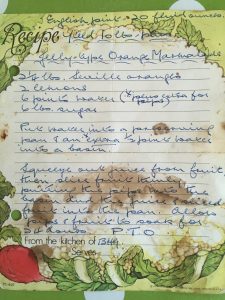 English pint - 20 fluid ounces.
Recipe Yield 10 lbs.
Jelly-type Orange Marmalade
2¼ lbs. Seville oranges
2 lemons
6 pints water
6 lbs. sugar
Put water into a preserving
pan & an extra ½ pint water
into a basin.
Squeeze out juice from fruit
then slice
putting the pips into the
basin and the juice & sliced
fruit into the pan. Allow
pips & fruit to soak for
24 hours. P.T.O
From the kitchen of
Serves